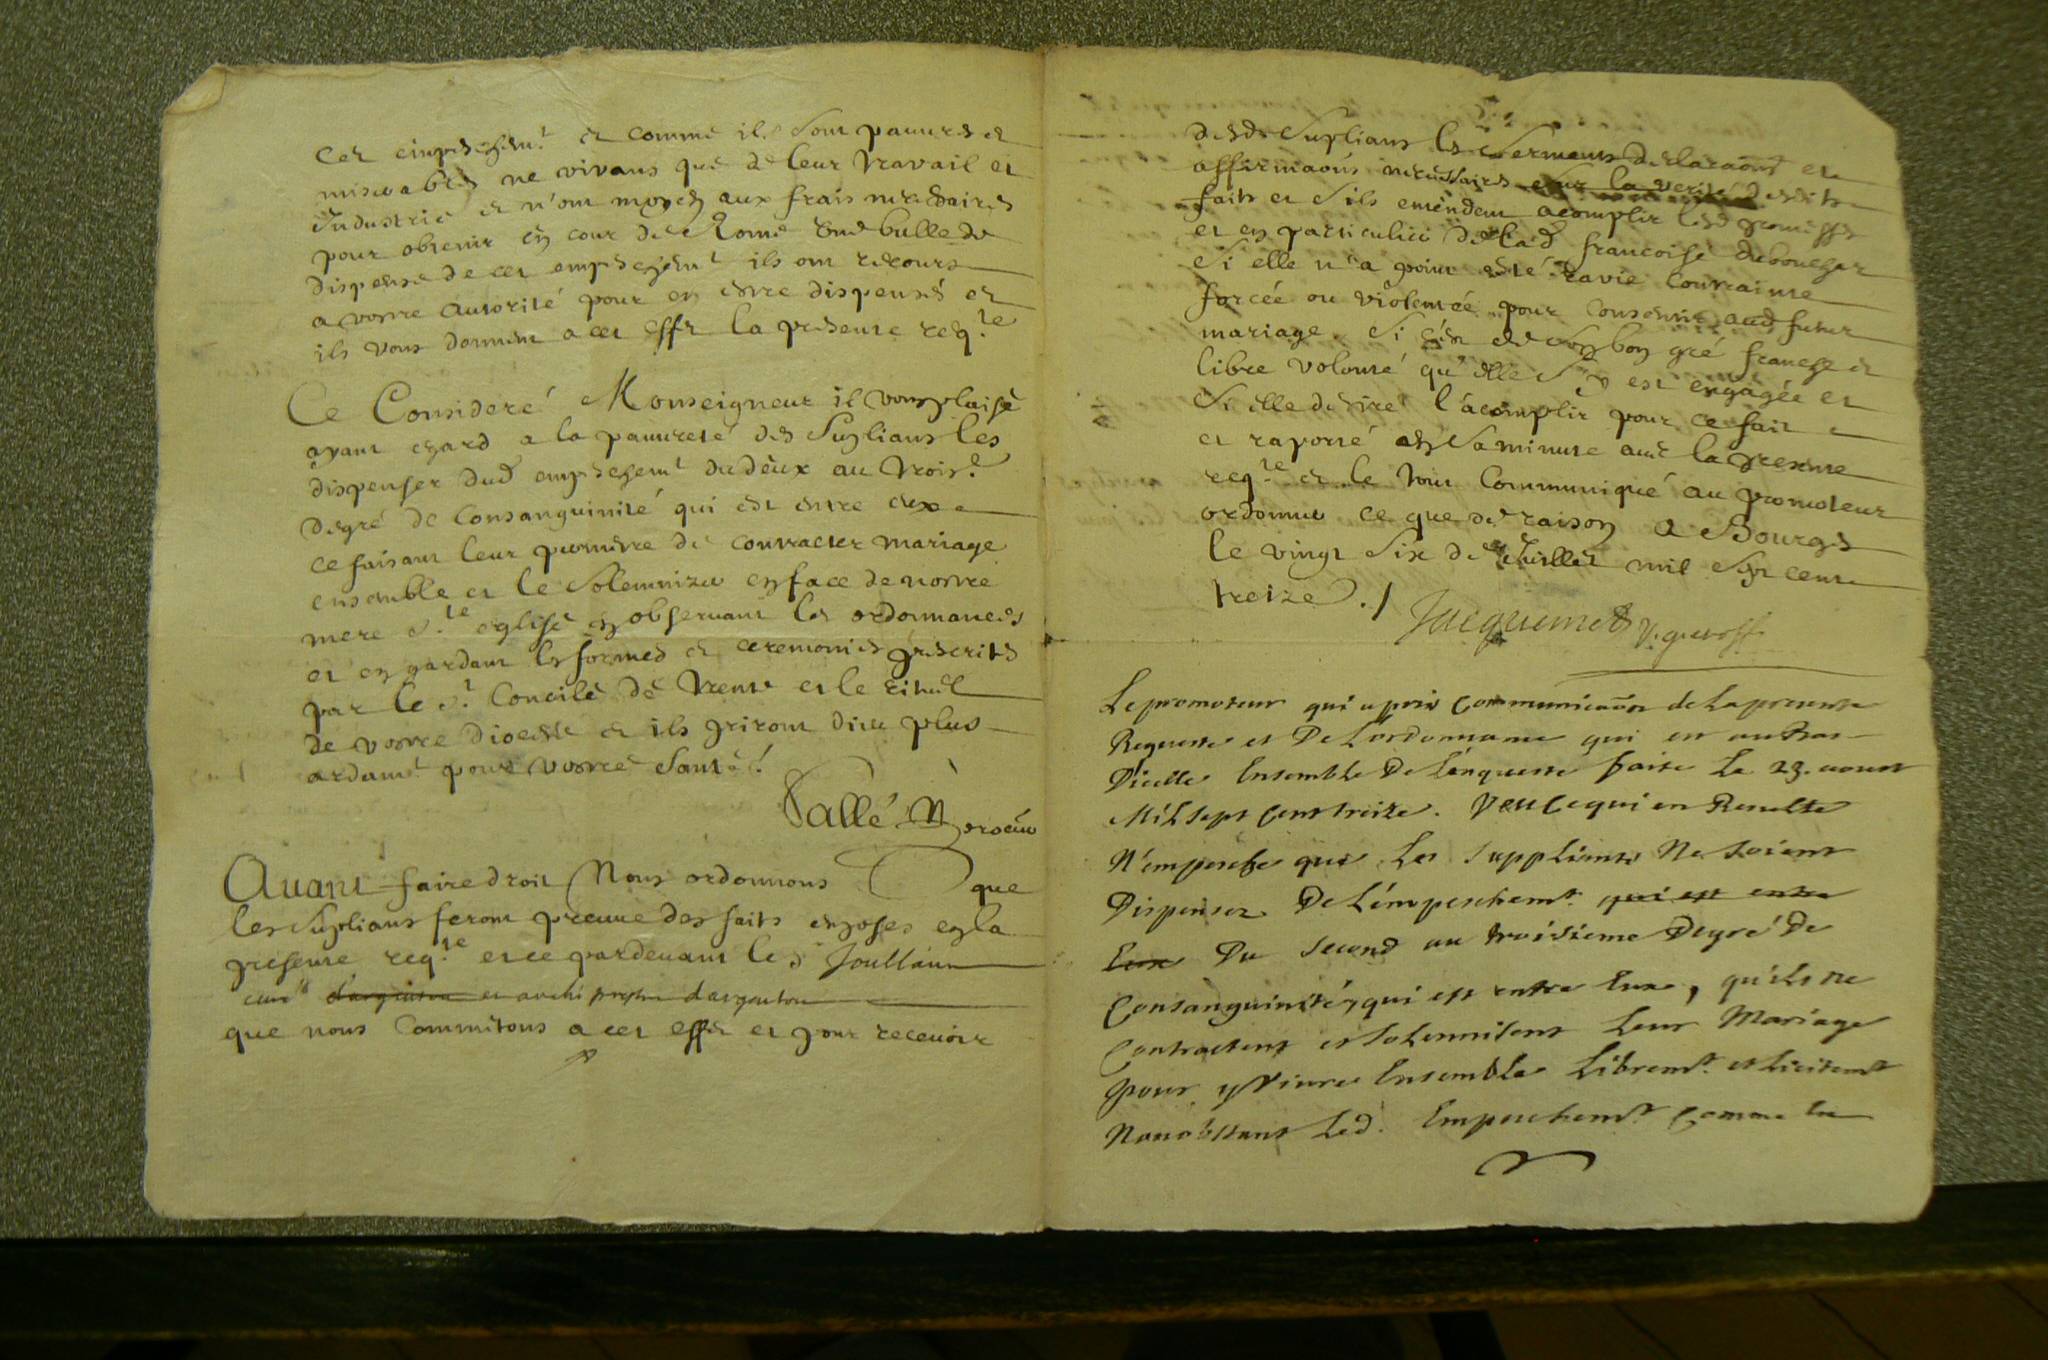 cet empeschem.t et comme ils sont pauvres et
miserables ne vivans que de leur travail et
industrie et n'ont moyen aux frais necessaires
pour obtenir en cour de Rome une bulle de
dispense de cet empeschem.t ils ont recours
a vostre autorité pour en estre dispensés et
ils vous donnent a cet effet la presente req.te
Ce Consideré Monseigneur il vous plaise
ayant egard a la pauvreté des suplians les
dispenser dud empeschem.t du deux au trois.e
degré de consanguinité qui est entre eux
ce faisant leur permettre de contracter mariage
ensemble et le solemnizer en face de nostre
mere s.te eglise en observant les ordonnances
et en gardant les formes et ceremonies prescrites
par le s.t Concile de Trente et le rituel
de vostre diocese et ils priront dieu plus
ardam.t pour vostre santé.
Avant faire droit Nous ordonnons que
les suplians feront preuve des faits exposes en la
presente req.te et ce pardevant le s Joullain
curé d'argenton et archi prestre dargenton
que nous Commettons a cet effet et pour recevoir
desd. suplians les sermens declaraons et
affirmaons necessaires sur la verité desdits
faits et s'ils entendent acomplir lesd promesses
et en particulier de lad francoise duboucher
si elle n'a point esté ravie contrainte
forcée ou violentée pour consentir aud futur
mariage. si c'est de son bon gré franche et
libre volonté qu'elle s'y est engagée et
si elle desire l'acomplir pour ce fait
et raporté en sa minute avec la presente
req.te et le tout communiqué au promoteur
ordonner ce que de raison a Bourges
le vingt six de Juillet mil sept cent
treize ./ Jacquemet
Le promoteur qui a pris communicaon de la presente
Requeste et De l'ordonnance qui est au bas
Dicelle Ensemble De l'enqueste faite le 23. aoust
Mil sept cent treize. Veu ce qui en Resulte
N'empesche que les suppliants Ne soient
Dispensez De l'empeschem.t qui est entre
Eux Du second au troisieme Degré De
Consanguinité, qui est entre Eux, qu'ils ne
Contractent et solennisent leur Mariage
pour y vivre Ensemble librem.t et licitem.t
Nonobstant led. Empeschem.t Comme